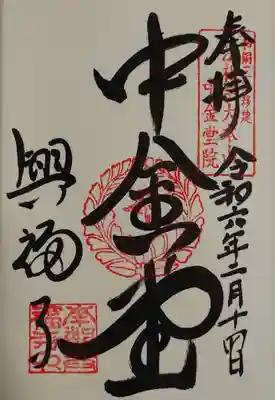 奉拝 令和六年二月十四日
中金堂
興福寺